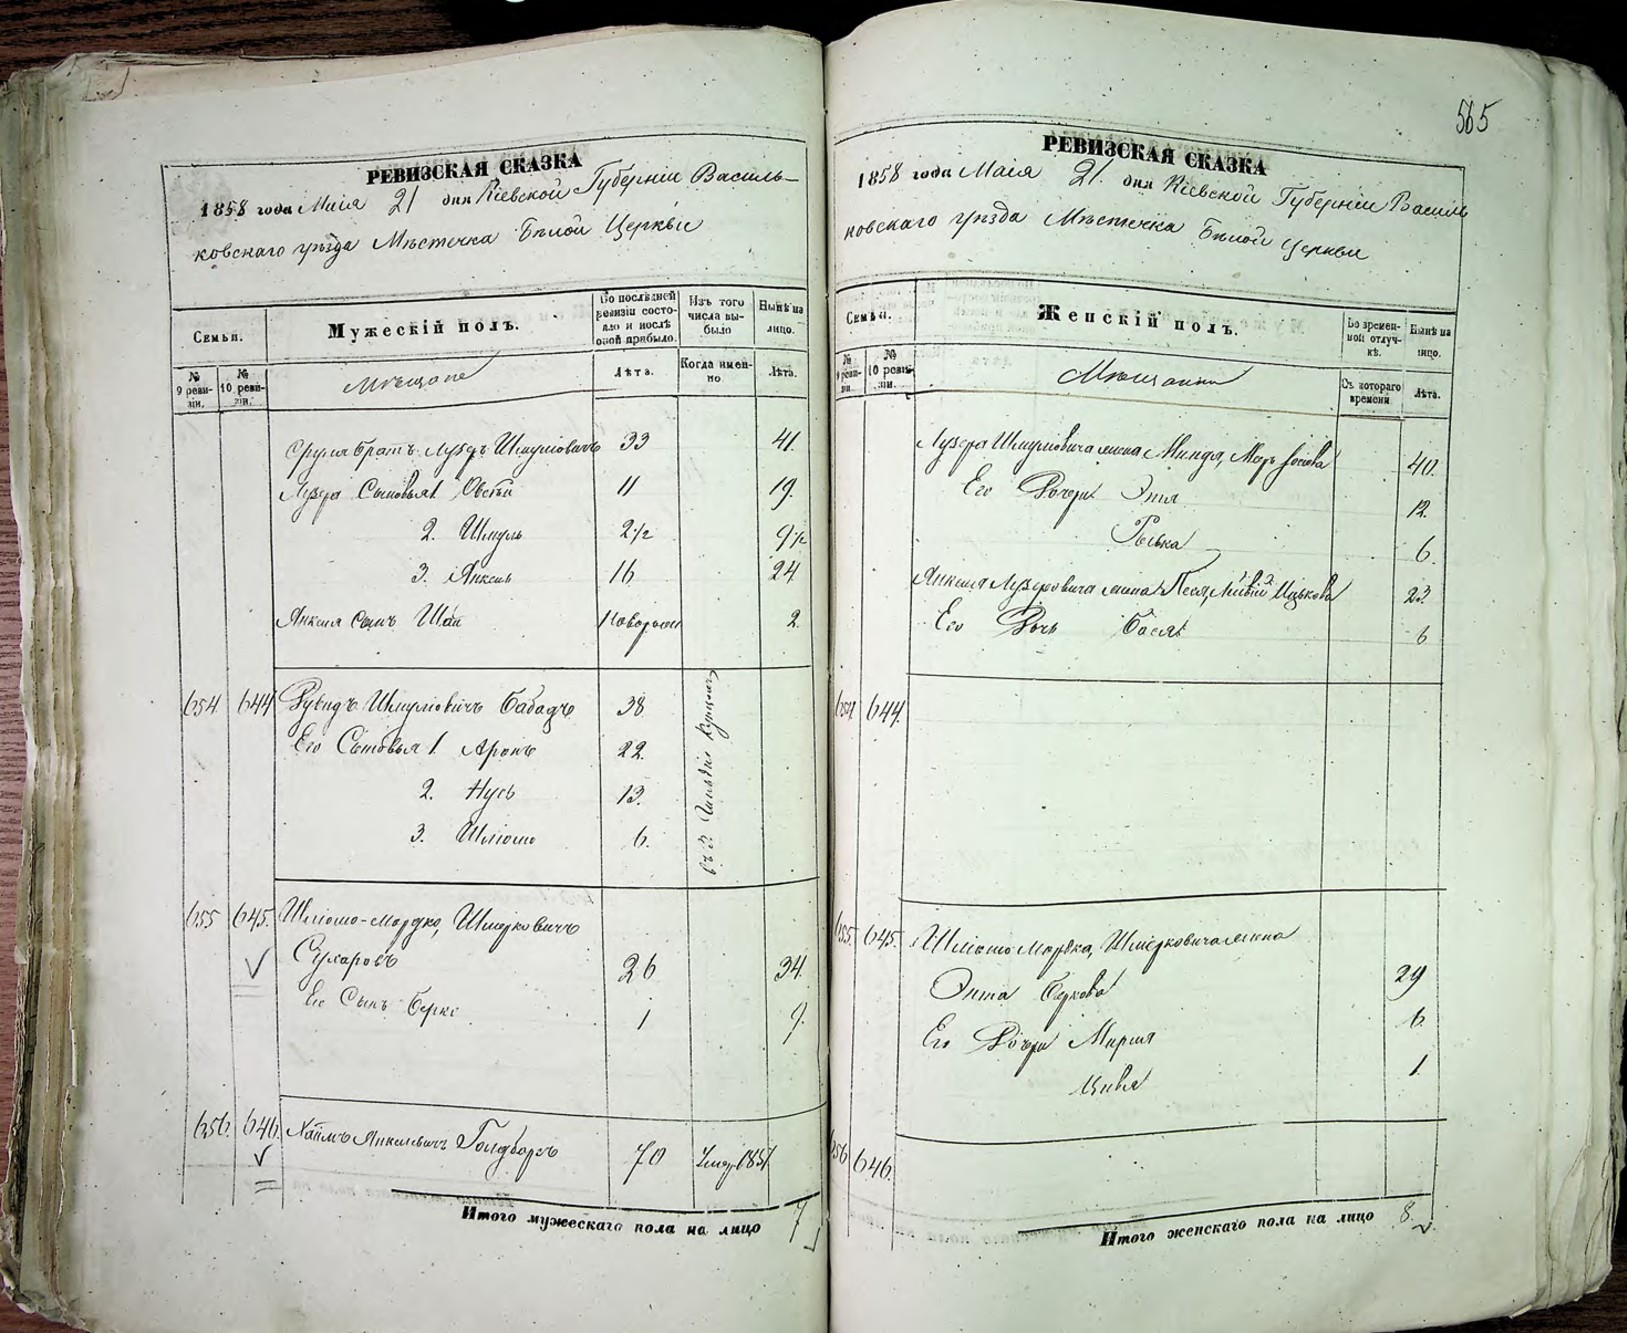 565
РЕВИЗСКАЯ СКАЗКА
1858 года Маія 21 дня Кіевской Губерніи Василь-
ковскаго уѣзда Мѣстечка Бѣлой Церкви
Семьи.
Мужескій полъ.
По последней ревизіи состояло и послѣ оной прибыло.
Изъ того числа выбыло
Нынѣ на лицо.
№ 9 ревизіи.
№ 10 ревизіи.
Мѣщане
Лѣта.
Когда именно
Лѣта.
братъ Лузеръ Шмулiовичъ 33 41.
Лузера Сыновья 1 11 19.
2. Шмуль 2½ 9½
3. Янкель 16 24
Янкеля сынъ 2.
654 644 Рувидъ Шмулiовичъ Бабадъ 38.
Его Сыновья 1. Аронъ 22.
2. Нусь 13.
3. Шлiомо 6.
655 645. Шлiомо-Мордко, Шмерковичъ
Сухаровъ 26 34.
Его Сынъ Берко 1 9.
656. 646. Хаимъ Янкелевичъ 70 Умер. 1857.
Итого мужескаго пола на лицо 7
РЕВИЗСКАЯ СКАЗКА
1858 года Маія 21. дня Кіевской Губерніи Василь
ковскаго уѣзда Мѣстечка Бѣлой Церкви
Семьи.
Женскій полъ.
Во временной отлучкѣ.
Нынѣ на лицо.
№ 9 ревизіи.
№ 10 ревизіи.
Мѣщанки
Съ котораго времени
Лѣта.
Лузера Шмулiовича жена 40.
Его Дочери Энта 12.
Роська 6.
Янкеля Лузеровича жена Песя, 23.
Его Дочь Бася 6
654 644.
655. 645. Шлiомо Мордка, Шмерковича жена
Энта Беркова 29
Его Дочери Мирия 6.
Цивя 1.
656 646.
Итого женскаго пола на лицо 8.